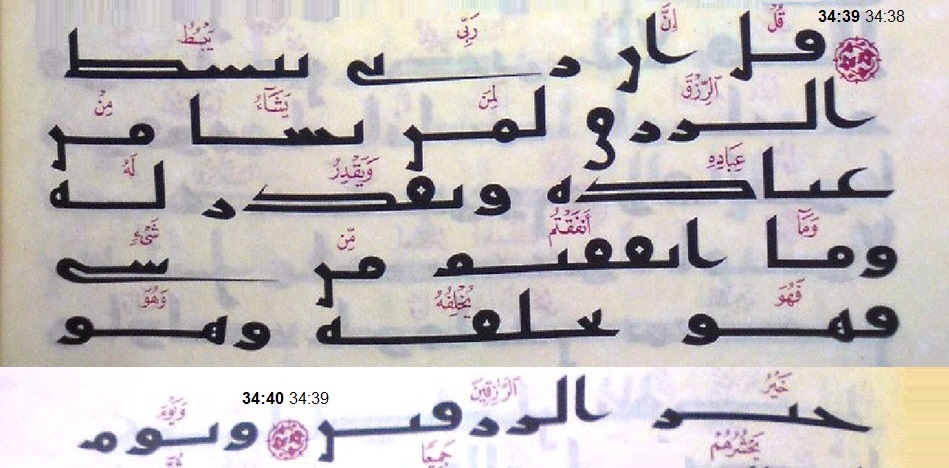 34:39 34:38
قُلْ إِنَّ رَبِّى يَبْسُطُ
قل ان ربى يبسط
ٱلرِّزْقَ لِمَن يَشَآءُ مِنْ
الرزق لمن يشا من
عِبَادِهِۦ وَيَقْدِرُ لَهُۥ
عباده ويقدر له
وَمَآ أَنفَقْتُم مِّن شَىْءٍ
وما انفقتم من شى
فَهُوَ يُخْلِفُهُۥ وَهُوَ
فهو يخلفه وهو
34:40 34:39
خَيْرُ ٱلرَّٰزِقِينَ وَيَوْمَ
خير الرزقين ويوم
يَحْشُرُهُمْ جَمِيعًا